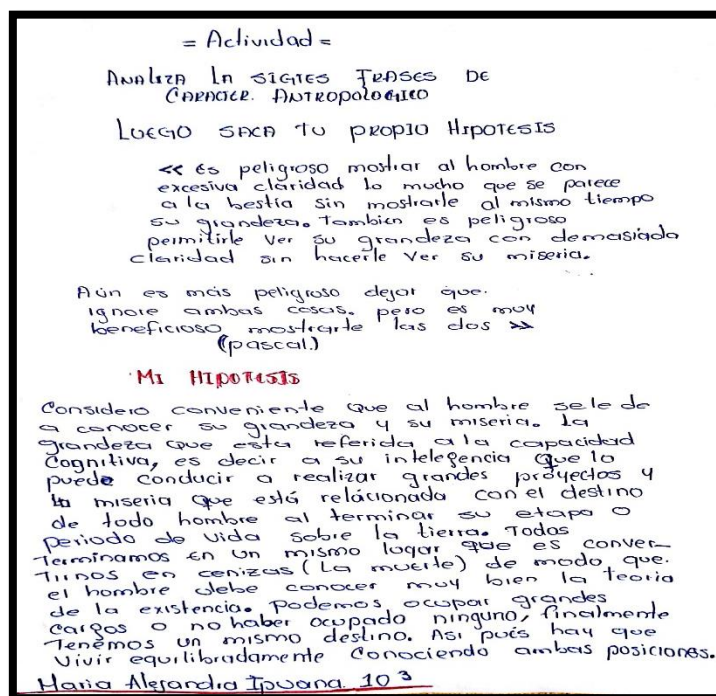 = Actividad =
ANALIZA LA SIGTES FRASES DE
CARACTER. ANTROPOLOGICO
LUEGO SACA TU PROPIO HIPOTESIS
<< es peligroso mostrar al hombre con
excesiva claridad lo mucho que se parece
a la bestia sin mostrarle al mismo tiempo
su grandeza. Tambien es peligroso
permitirle ver su grandeza con demasiada
claridad sin hacerle ver su miseria.
Aún es más peligroso dejar que.
ignore ambas cosas. pero es muy
beneficioso mostrarte las dos >>
(pascal.)
MI HIPOTESIS
Considero conveniente que al hombre se le de
a conocer su grandeza y su miseria. la
grandeza que esta referida a la capacidad
Cognitiva, es decir a su intelegencia que lo
puede conducir a realizar grandes proyectos y
la miseria que está relacionada con el destino
de todo hombre al terminar su etapa o
periodo de vida sobre la tierra. Todos
Terminamos en un mismo lugar que es conver-
tirnos en cenizas (La muerte) de modo que.
el hombre debe conocer muy bien la teoria
de la existencia. Podemos ocupar grandes
cargos o no haber ocupado ninguno, finalmente
Tenemos un mismo destino. Asi pués hay que
vivir equilibradamente conociendo ambas posiciones.
Maria Alejandra Ipuana 10³